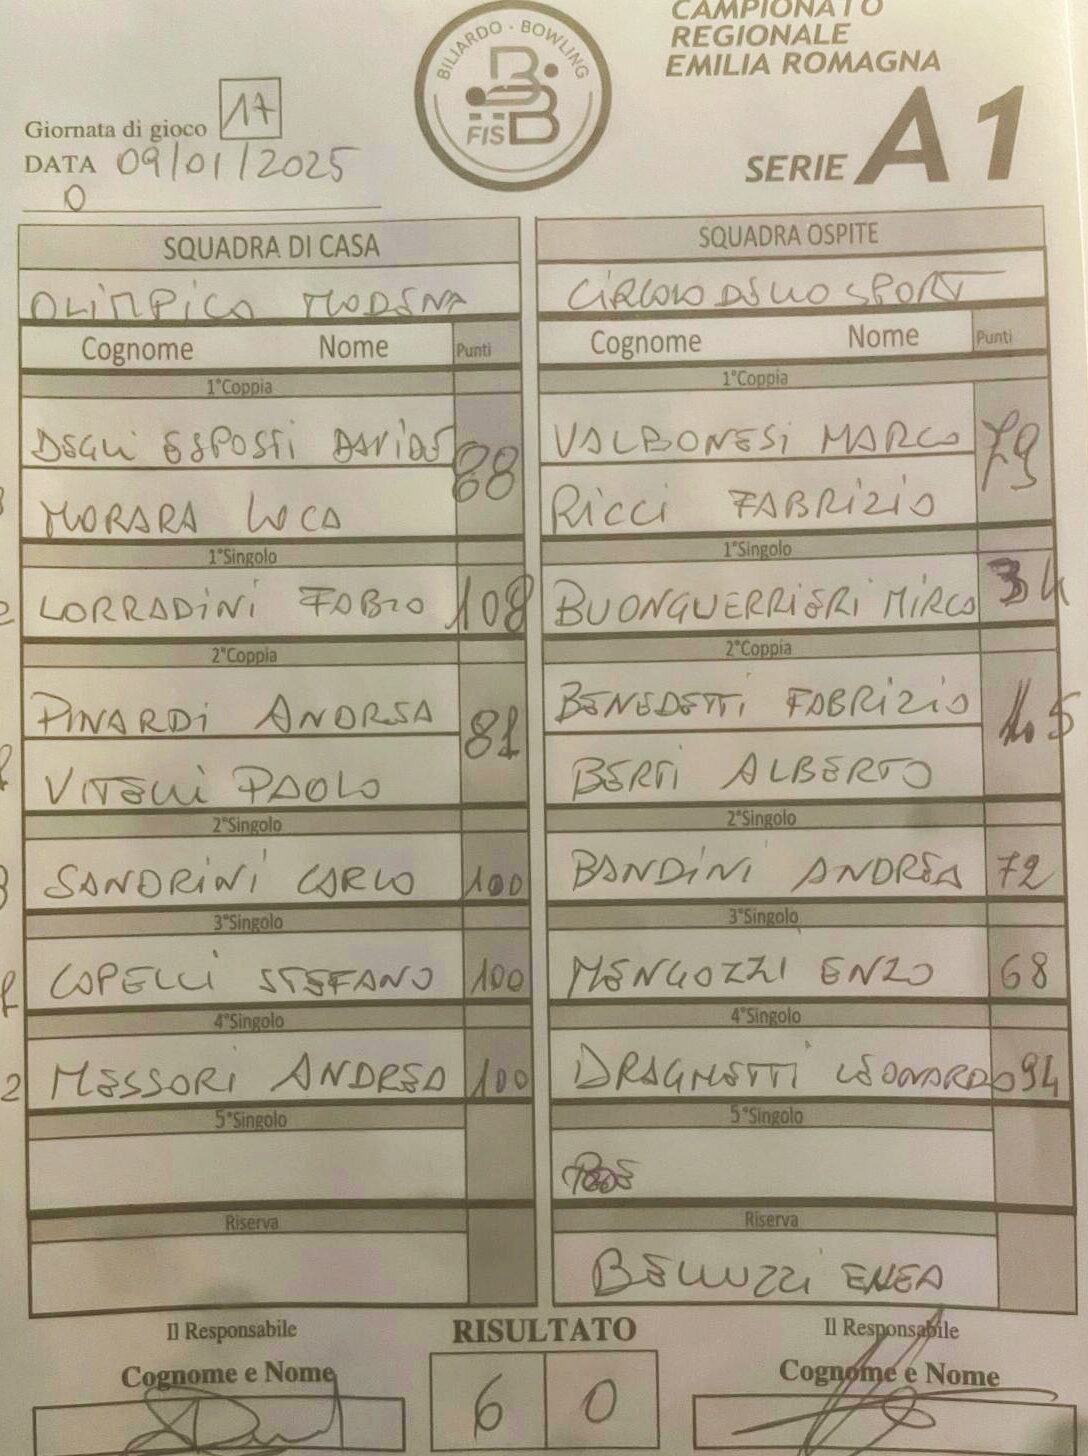 BILIARDO · BOWLING
FISBB
CAMPIONATO
REGIONALE
EMILIA ROMAGNA
SERIE A1
Giornata di gioco 17
DATA 09/01/2025
0
SQUADRA DI CASA SQUADRA OSPITE
OLIMPICA MODENA CIRCOLO DELLO SPORT
Cognome Nome Punti Cognome Nome Punti
1°Coppia 1°Coppia
DEGLI ESPOSTI DAVIDE 88 VALBONESI MARCO 79
MORARA LUCA RICCI FABRIZIO
1°Singolo 1°Singolo
CORRADINI FABIO 108 BUONGUERRIERI MIRCO 34
2°Coppia 2°Coppia
PINARDI ANDREA 81 BENEDETTI FABRIZIO
VITELLI PAOLO BERTI ALBERTO
2°Singolo 2°Singolo
SANDRINI CARLO 100 BANDINI ANDREA 72
3°Singolo 3°Singolo
COPELLI STEFANO 100 MENGOZZI ENZO 68
4°Singolo 4°Singolo
MESSORI ANDREA 100 DRAGHETTI LEONARDO 94
5°Singolo 5°Singolo
Riserva Riserva
BELLUZZI ENEA
Il Responsabile RISULTATO Il Responsabile
Cognome e Nome 6 0 Cognome e Nome